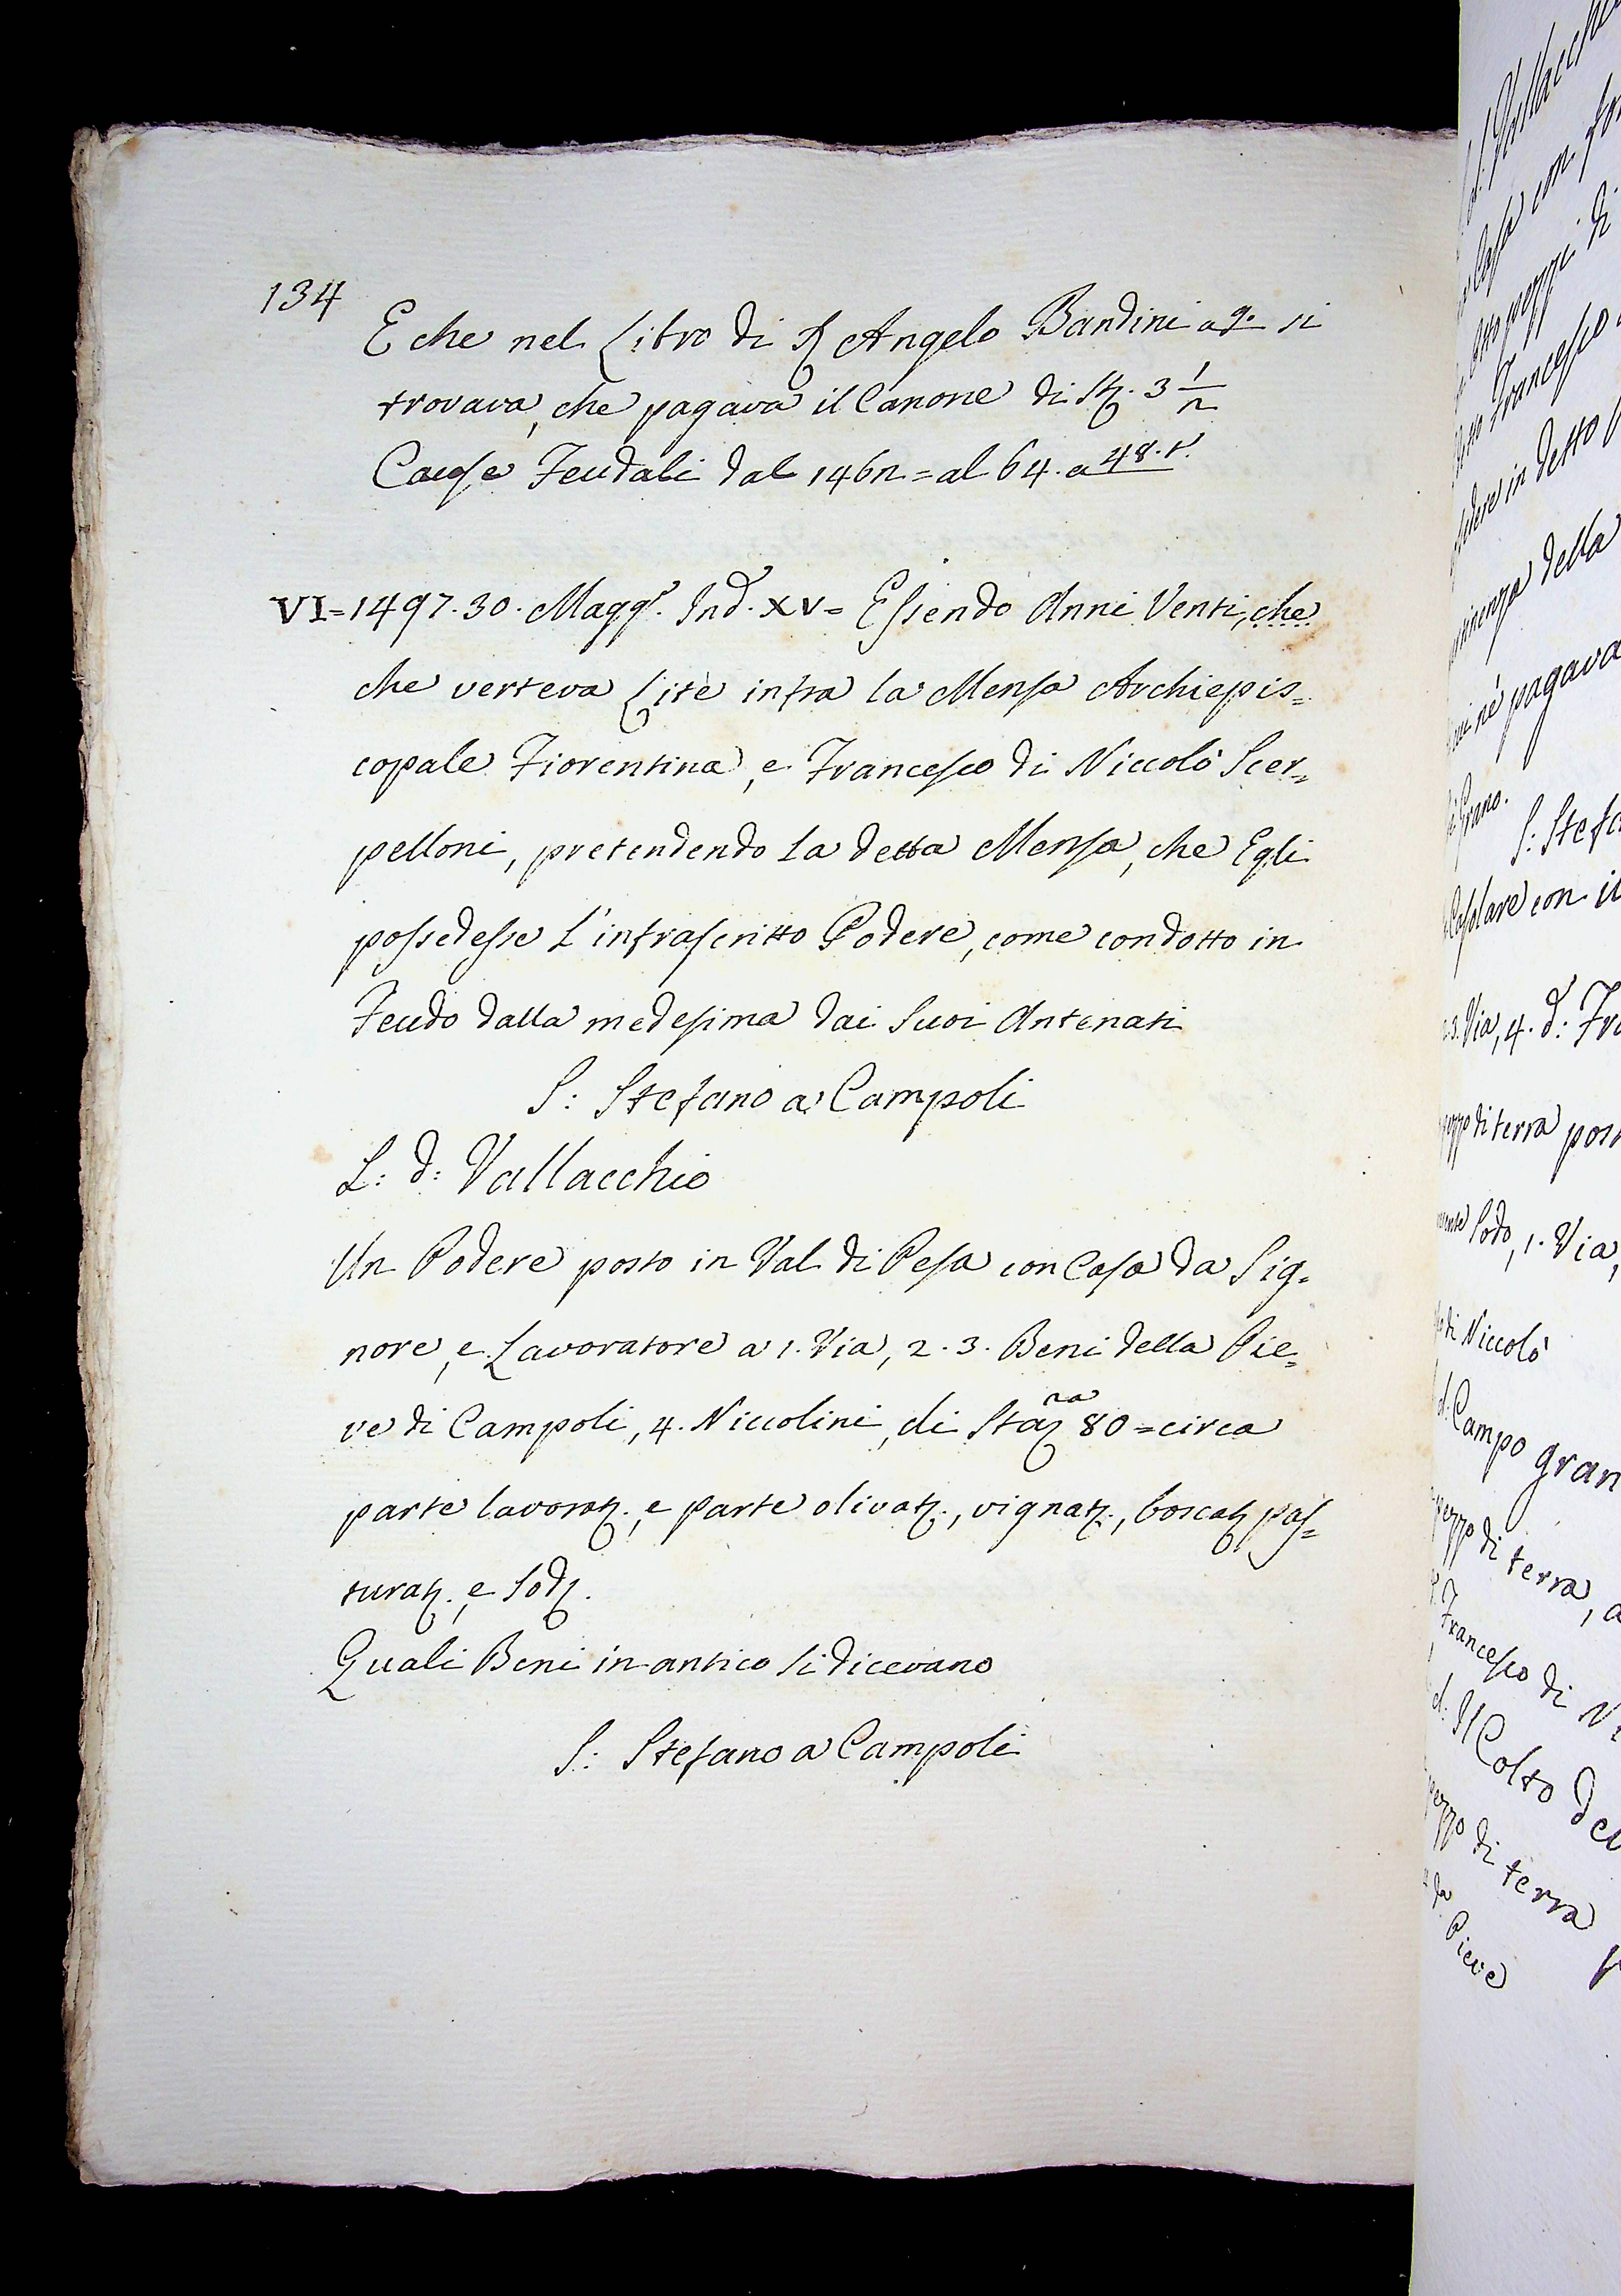 134
E che nel Libro di S. Angelo Bandini a 9. si
trovava, che pagava il Canone di St. 3 1/2
Cause Feudali dal 1462 = al 64. a 48. t.
VI = 1497. 30. Magg. Ind. XV = Essendo Anni Venti, che
che verteva Lite infra la Mensa Archiepis=
copale Fiorentina, e Francesco di Niccolò Scer=
pelloni, pretendendo La detta Mensa, che Egli
possedesse L'infrascritto Podere, come condotto in
Feudo dalla medesima dai Suoi Antenati
S: Stefano a Campoli
L: d: Vallacchio
Un Podere posto in Val di Pesa con Casa da Sig=
nore, e Lavoratore a 1. Via, 2. 3. Beni della Pie=
ve di Campoli, 4. Niccolini, di Sta. ra 80 = circa
parte lavorat., e parte olivat., vignat., boscat. pas=
turat. e Sod.
Quali Beni in antico si dicevano
S: Stefano a Campoli
casa con
pezzi di
Francesco
in detto
della
né pagava
Grano.
S: Stefa
Casolare con il
3. Via, 4. d: Fra
pezzo di terra post
Sodo, 1. Via,
di Niccolò
d: Campo gran
pezzo di terra, a
Francesco di Ni
d: Il Colto del
pezzo di terra p
da Pieve